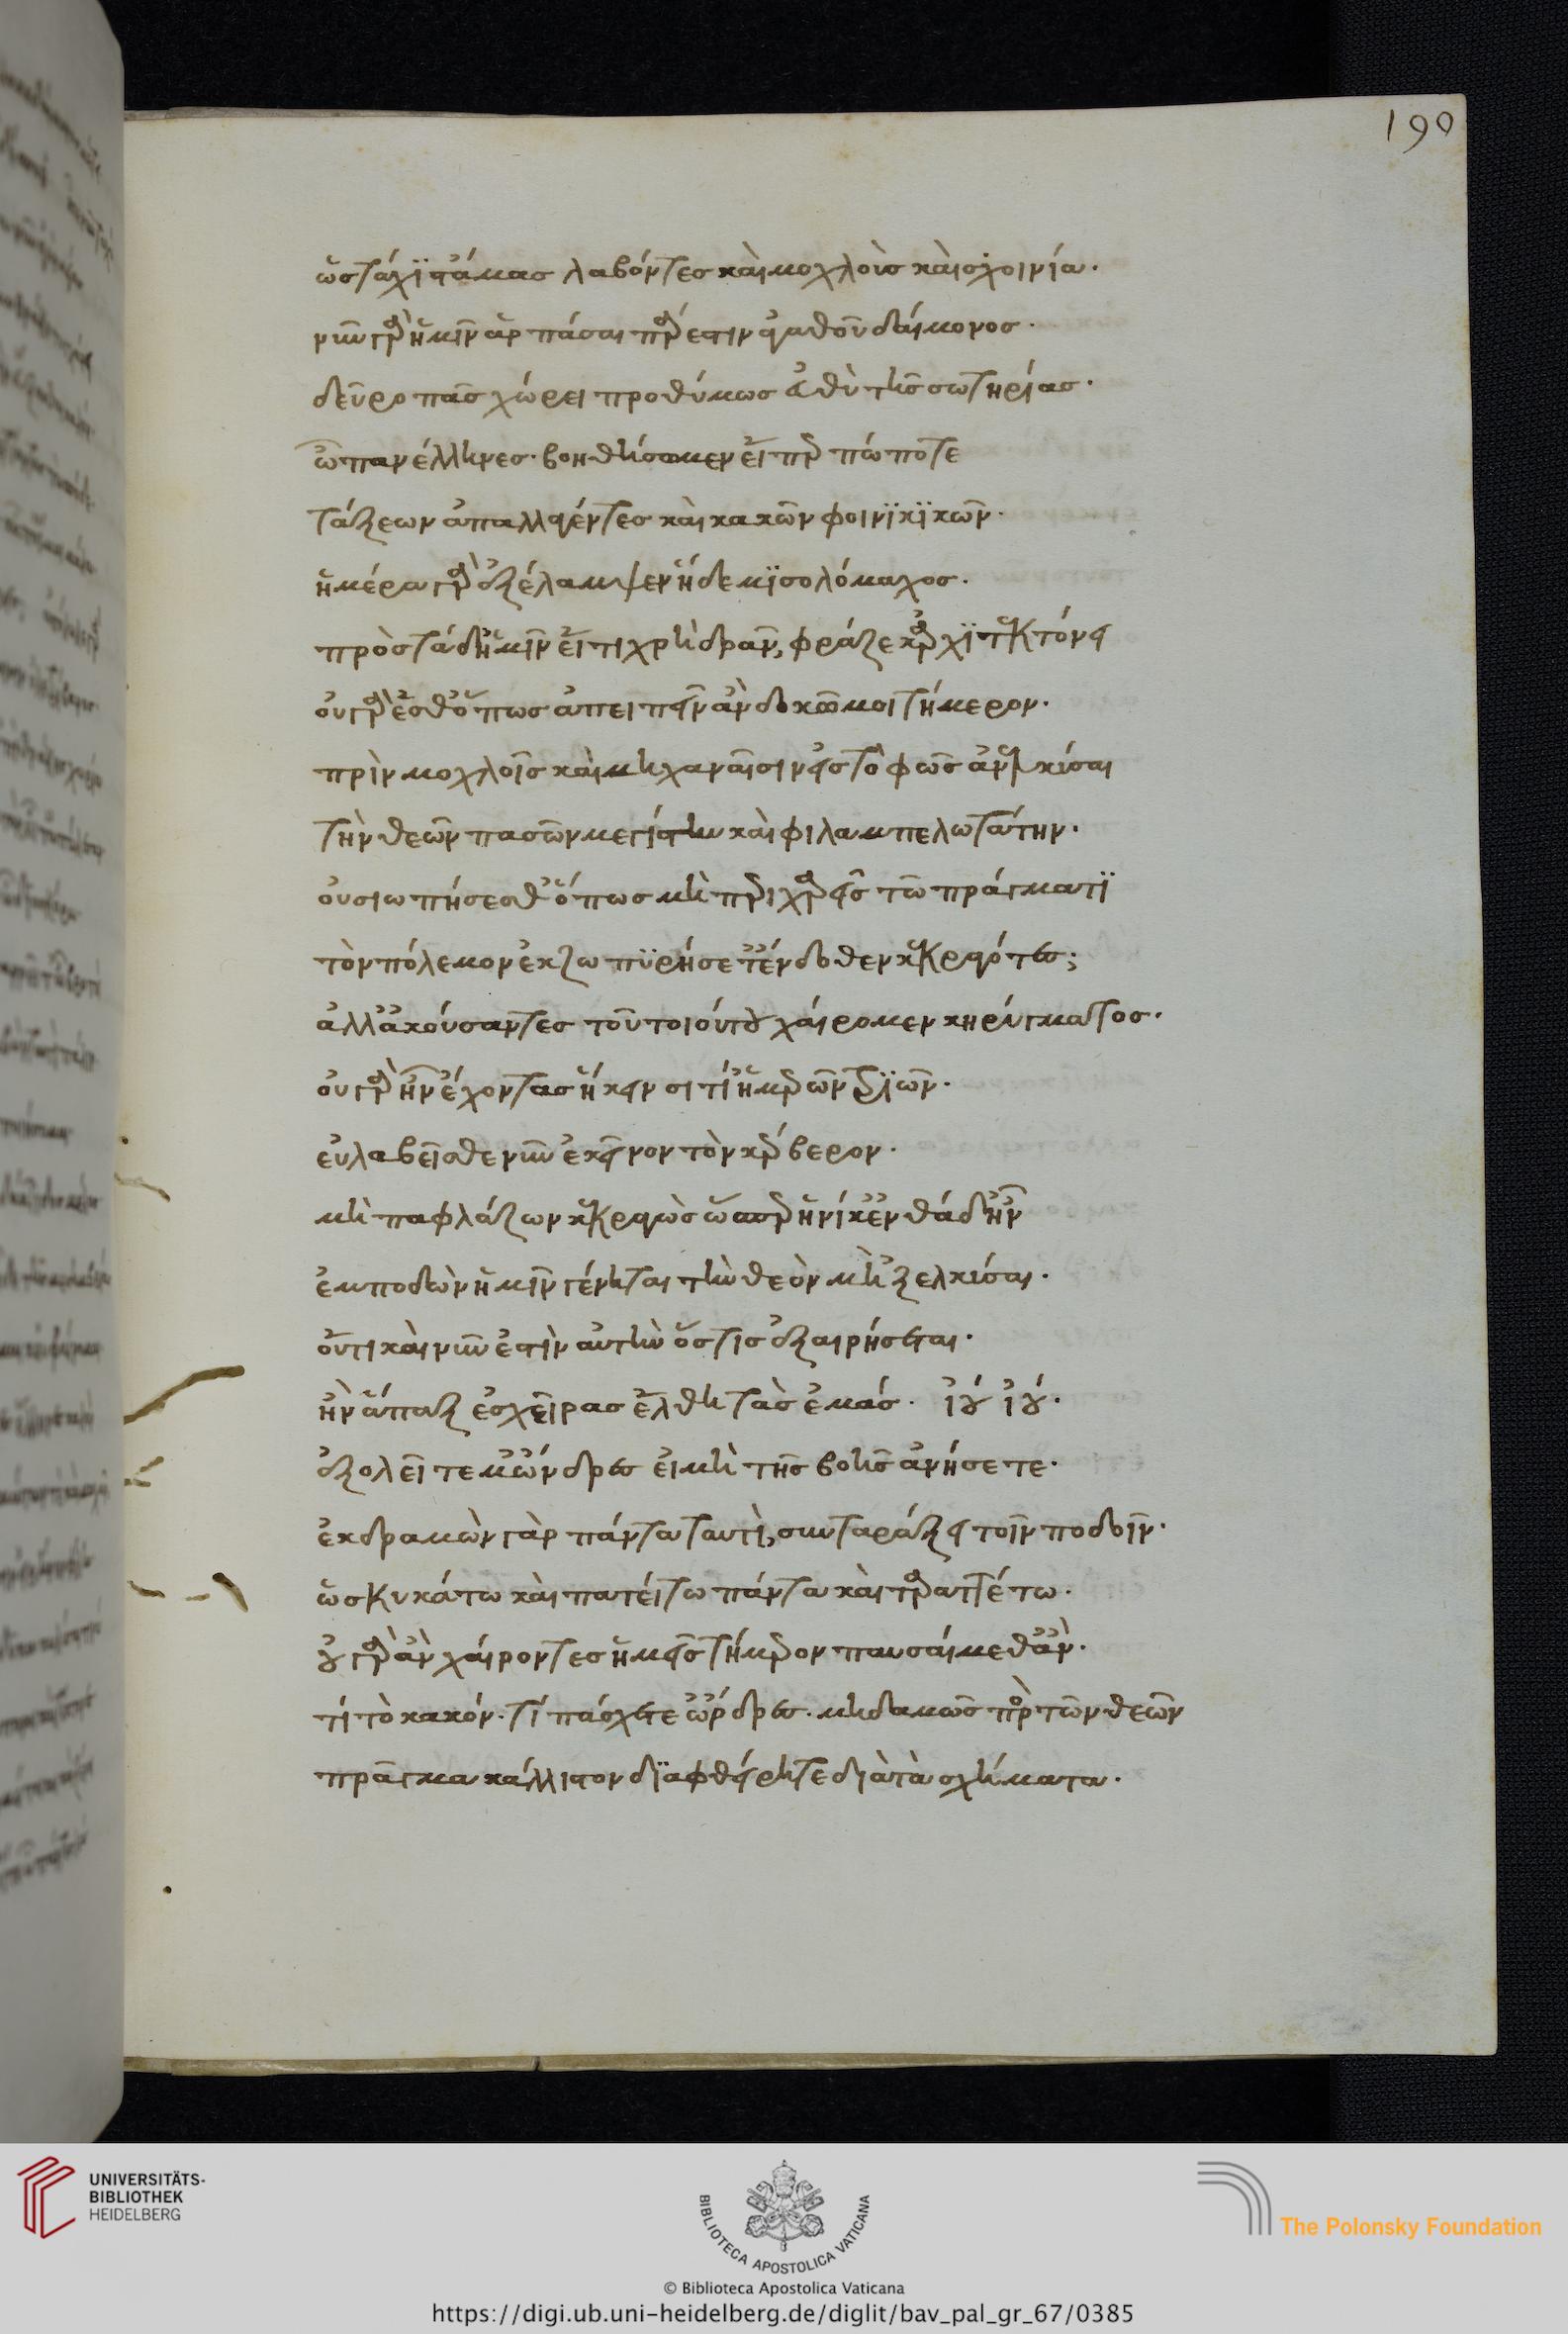 190
ὡς τάχιστ' ἄμας λαβόντες καὶ μοχλοὺς καὶ σχοινία·
νῦν γὰρ ἡμῖν ἁρπάσαι πάρεστιν ἀγαθοῦ δαίμονος·
δεῦρο πᾶς χώρει προθύμως εὐθὺ τῆς σωτηρίας·
ὦ πανέλληνες· βοηθήσωμεν εἴπερ πώποτε
τάξεων ἀπαλλαγέντες καὶ κακῶν φοινϊκϊκῶν·
ἡμέρα γὰρ ἐξέλαμψεν ἥδε μϊσολάμαχος·
πρὸς τάδ' ἡμῖν εἴ τι χρὴ δρᾶν, φράζε κἀρχϊτεκτόνει
οὐ γὰρ ἔσθ' ὅπως ἀπειπεῖν ἂν δοκῶ μοι τήμερον·
πρὶν μοχλοῖς καὶ μηχαναῖσιν εἰς τὸ φῶς ἀνελκύσαι
τὴν θεῶν πασῶν μεγίστην καὶ φιλαμπελωτάτην·
οὐ σιωπήσεσθ' ὅπως μὴ περιχαρεῖς τῷ πράγματϊ
τὸν πόλεμον ἐκζωπϋρήσετ' ἔνδοθεν κεκραγότες;
ἀλλ' ἀκούσαντες τοῦ τοιούτου χαίρομεν κηρύγματος·
οὐ γὰρ ἦν ἔχοντας ἥκειν σιτί' ἡμερῶν τρϊῶν·
εὐλαβεῖσθε νῦν ἐκεῖνον τὸν κέρβερον·
μὴ παφλάζων κεκραγὼς ὥσπερ ἡνίκ' ἐνθάδ' ἦν
ἐμποδὼν ἡμῖν γένηται τὴν θεὸν μὴ 'ξελκύσαι·
οὔτι καὶ νῦν ἐστὶν αὐτὴν ὅστις ἐξαιρήσεται·
ἢν ἅπαξ ἐς χεῖρας ἔλθη τὰς ἐμάς· ἰοὺ ἰού·
ἐξολεῖτέ μ' ὦνδρες εἰ μὴ τῆς βοῆς ἀνήσετε·
ἐκδραμὼν γὰρ πάντα ταυτὶ, συνταράξει τοῖν ποδοῖν·
ὡς κυκάτω καὶ πατείτω πάντα καὶ ταραττέτω·
οὐ γὰρ ἂν χαίροντες ἡμεῖς τήμερον παυσαίμεθ' ἄν·
τί τὸ κακόν· τί πάσχετε ὦνδρες· μηδαμῶς πρὸς τῶν θεῶν
πρᾶγμα κάλλιστον δϊαφθείρητε διὰ τὰ σχήματα·
UNIVERSITÄTS-
BIBLIOTHEK
HEIDELBERG
BIBLIOTECA APOSTOLICA VATICANA
The Polonsky Foundation
© Biblioteca Apostolica Vaticana
https://digi.ub.uni-heidelberg.de/diglit/bav_pal_gr_67/0385